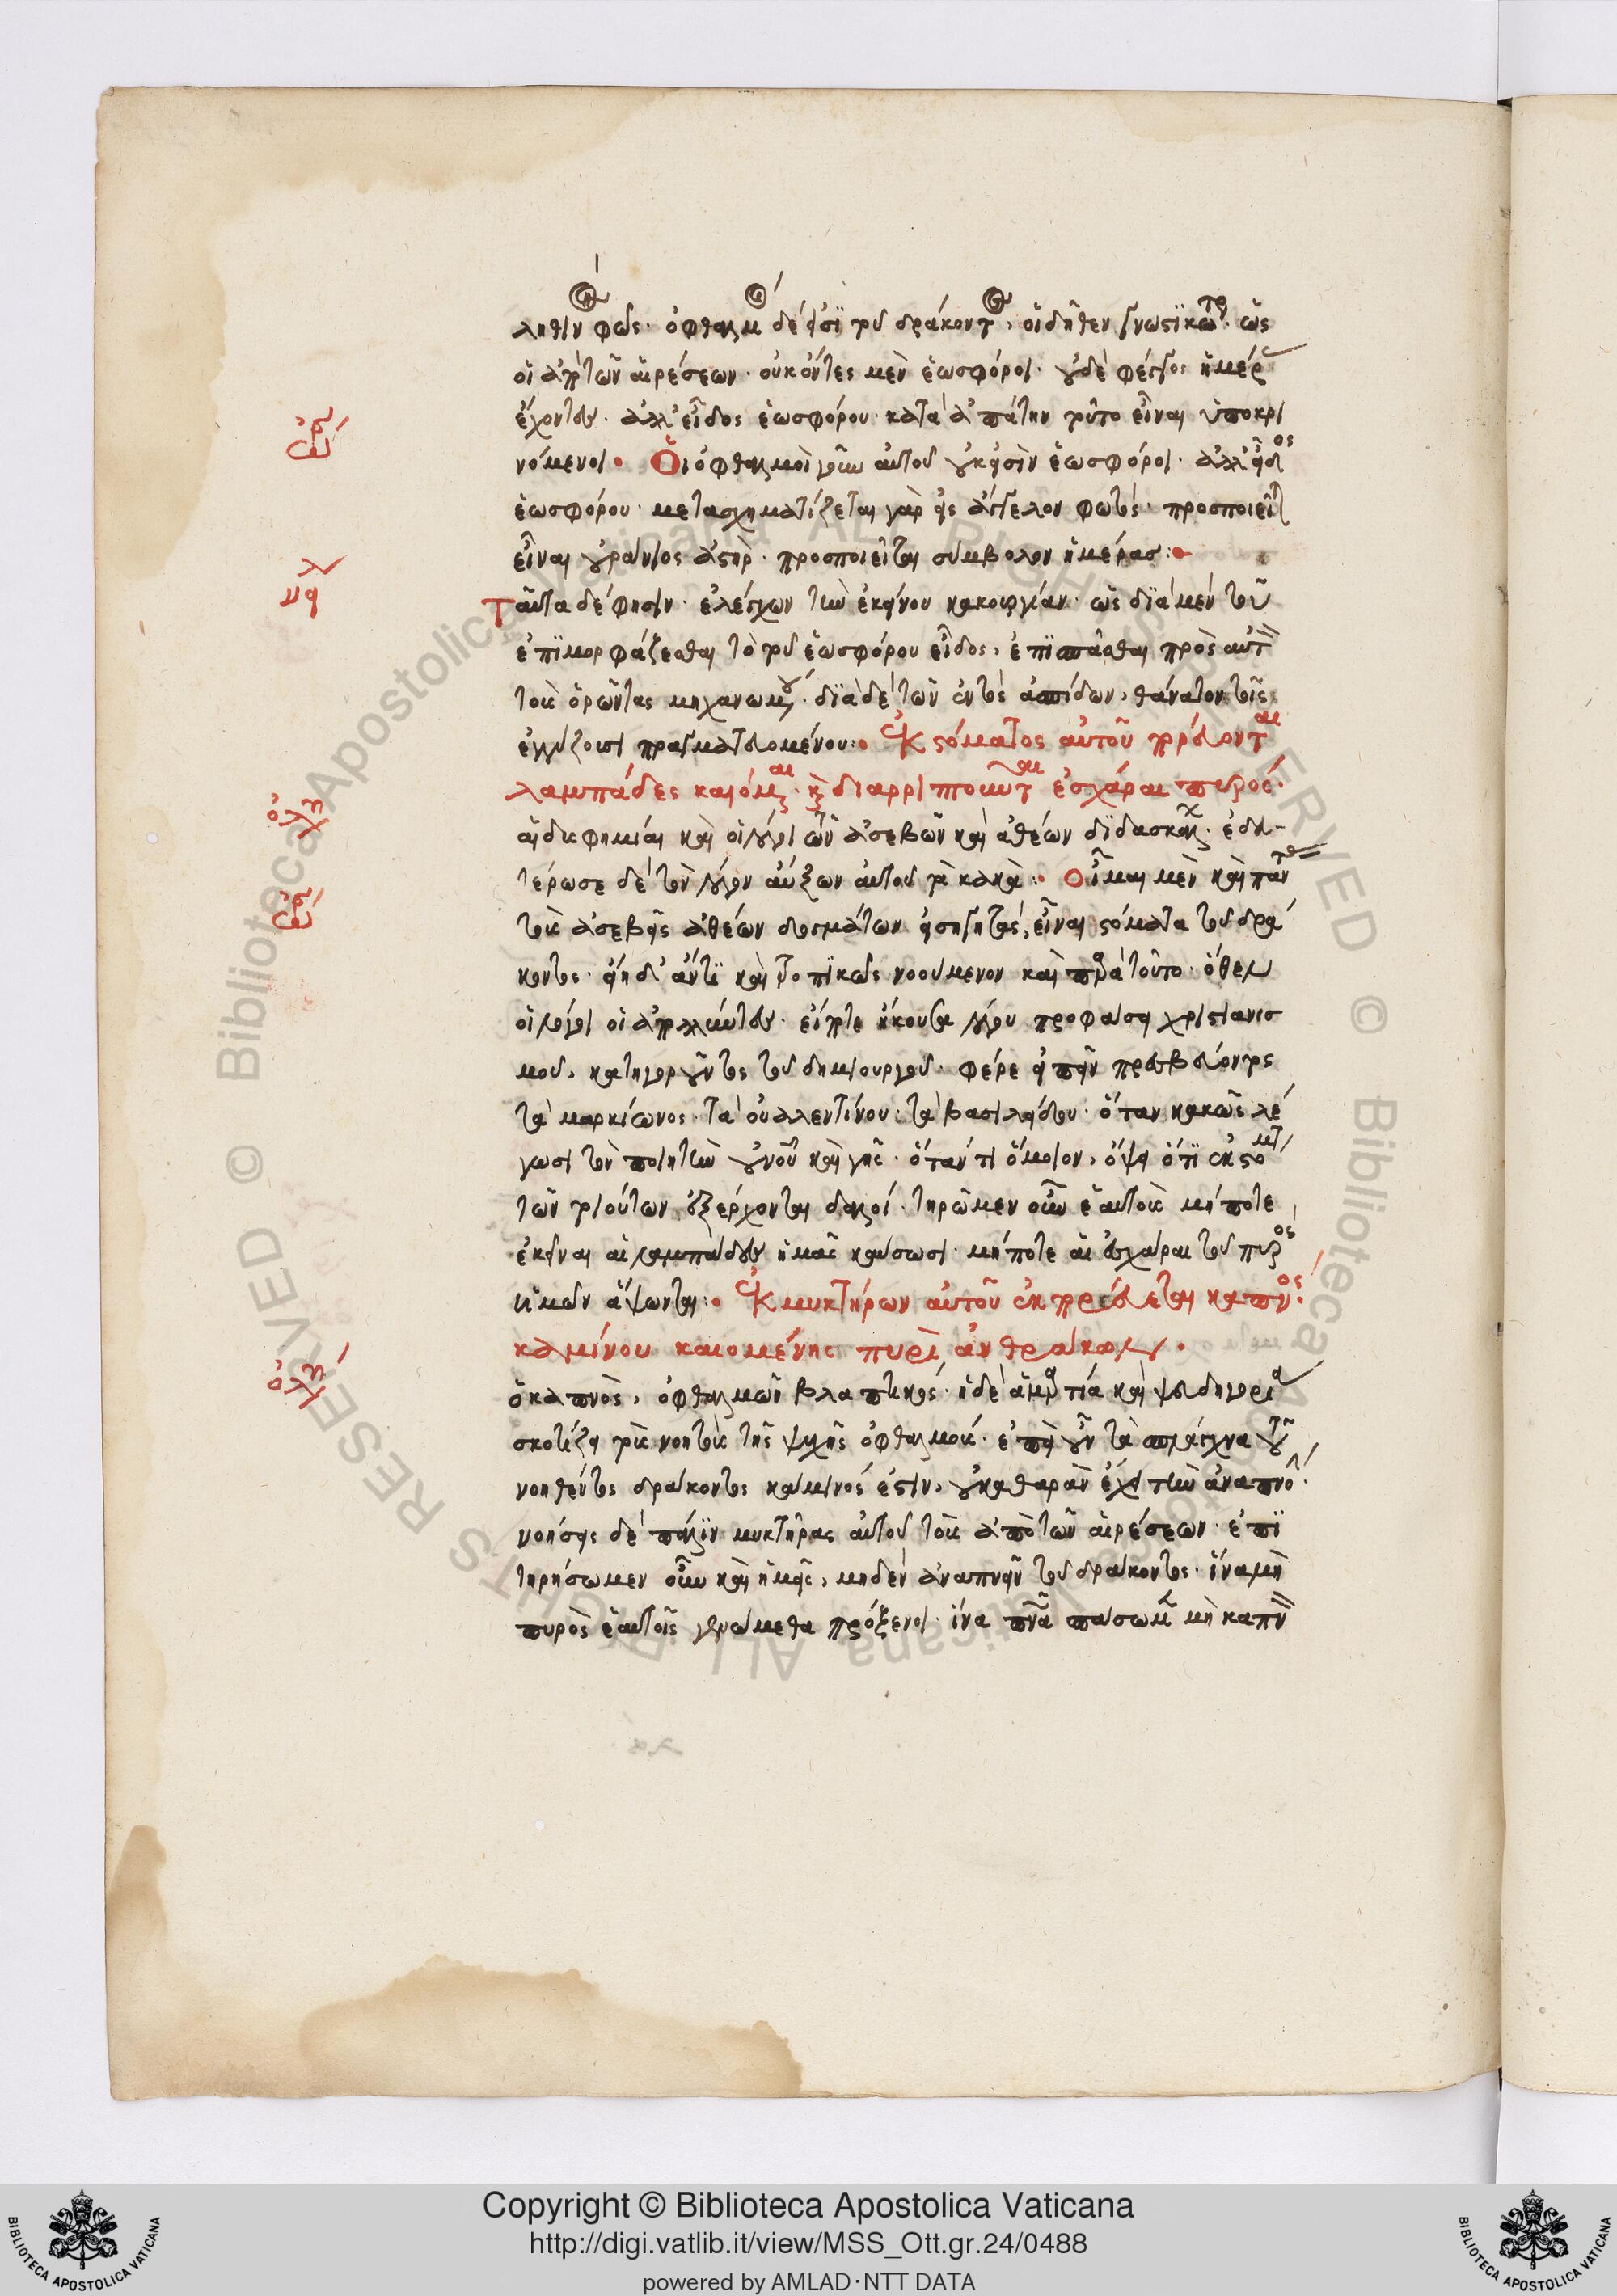 ληθὲν φῶς· ὀφθαλμοὶ δέ εἰσι τοῦ δράκοντος, οἱ δῆθεν γνωστικώτεροι· ὡς
οἱ ἀπὸ τῶν αἱρέσεων· οὐκ ὄντες μὲν ἑωσφόροι· οὐδὲ φέγγος ἡμέρας
ἔχοντες· ἀλλ' εἶδος ἑωσφόρου· κατὰ ἀπάτην τοῦτο εἶναι ὑποκρι
νόμενοι· Οἱ ὀφθαλμοὶ γοῦν αὐτοῦ οὐκ εἰσὶν ἑωσφόροι· ἀλλ' εἶδος
ἑωσφόρου· μετασχηματίζεται γὰρ εἰς ἄγγελον φωτός· προσποιεῖται
εἶναι οὐράνιος ἀστήρ· προσποιεῖται σύμβολον ἡμέρας:
Ταῦτα δέ φησιν· ἐλέγχων τὴν ἐκείνου κακουργίαν· ὡς διὰ μὲν τοῦ
ἐπιμορφάζεσθαι τὸ τοῦ ἑωσφόρου εἶδος, ἐπισπᾶσθαι πρὸς αὐτὸν
τοὺς ὁρῶντας μηχανωμένου· διὰ δὲ τῶν ἐντὸς ἀσπίδων, θάνατον τοῖς
ἐγγίζουσι πραγματευομένου: Ἐκ στόματος αὐτοῦ πορεύονται
λαμπάδες καιόμεναι· καὶ διαρριπτοῦνται ἐσχάραι πυρός·
αἱ δυσφημίαι καὶ οἱ λόγοι τῶν ἀσεβῶν καὶ ἀθέων διδασκάλων· ἐδευ-
τέρωσε δὲ τὸν λόγον αὔξων αὐτοῦ τὰ κακά: Οἶμαι μὲν καὶ πάντας
τοὺς ἀσεβεῖς ἀθέων δογμάτων εἰσηγητάς, εἶναι στόματα τοῦ δρά
κοντος·
οἱ λόγοι οἱ ἀπολλύντες· εἴ ποτε ἤκουσα λόγου προφάσει χριστιανισ
μοῦ, κατηγοροῦντος τοῦ δημιουργοῦ· φέρε εἰπεῖν πρεσβεύοντος
τὰ μαρκίωνος· τὰ οὐαλεντίνου· τὰ βασιλείδου· ὅταν κακῶς λέ
γωσι τὸν ποιητὴν οὐρανοῦ καὶ γῆς· ὅταν τι ὅμοιον, ὄψει ὅτι ἐκ στόματος
τῶν τοιούτων ἐξέρχονται δαλοί· τηρῶμεν οὖν ἑαυτοὺς μήποτε
ἐκεῖναι αἱ λαμπάδες ἡμᾶς καύσωσι· μήποτε αἱ ἐσχάραι τοῦ πυρὸς
ἡμῶν ἅψωνται: Ἐκ μυκτήρων αὐτοῦ ἐκπορεύεται καπνός·
καμίνου καιομένης πυρὶ ἀνθράκων·
ὁ καπνὸς, ὀφθαλμῶν βλαπτικός· ἡ δὲ ἁμαρτία καὶ ψευδηγορία
σκοτίζει τοὺς νοητοὺς τῆς ψυχῆς ὀφθαλμούς· ἐπεὶ οὖν τὰ σπλάγχνα τοῦ
νοηθέντος δράκοντος κάμινός ἐστιν, οὐ καθαρὰν ἔχει τὴν ἀναπνοήν·
νοήσεις δὲ πάλιν μυκτῆρας αὐτοῦ τοὺς ἀπὸ τῶν αἱρέσεων· ἐπι
τηρήσωμεν οὖν καὶ ἡμεῖς, μηδὲν ἀναπνεῖν τοῦ δράκοντος· ἵνα μὴ
πυρὸς ἑαυτοῖς γενώμεθα πρόξενοι· ἵνα πνεῦμα σπάσωμεν μὴ καπνὸν
Copyright © Biblioteca Apostolica Vaticana
http://digi.vatlib.it/view/MSS_Ott.gr.24/0488
powered by AMLAD·NTT DATA